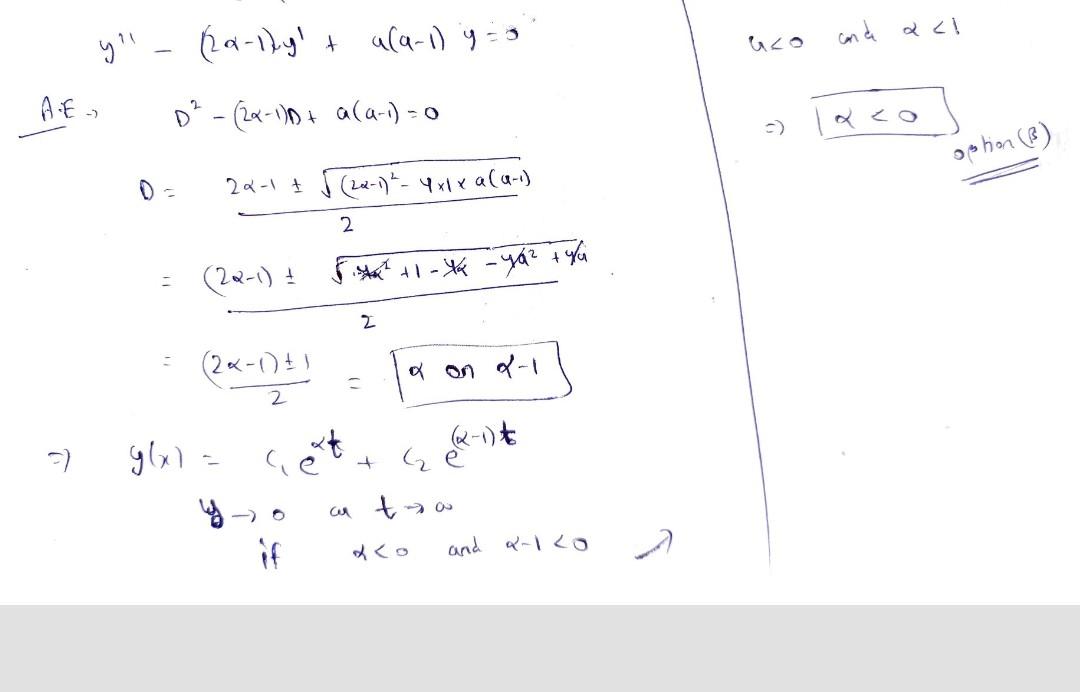 y'' - (2α-1)y' + a(a-1) y = 0
A·E → D² - (2α-1)D + a(a-1) = 0
D = 2α-1 ± √(2α-1)² - 4×1×a(a-1) / 2
= (2α-1) ± √4α² + 1 - 4α - 4α² + 4α / 2
= (2α-1) ± 1 / 2 = α or α-1
⇒ y(x) = C₁ e^αt + C₂ e^(α-1)t
y → 0 as t → ∞
if α < 0 and α-1 < 0
a < 0 and α < 1
⇒ α < 0
option (B)